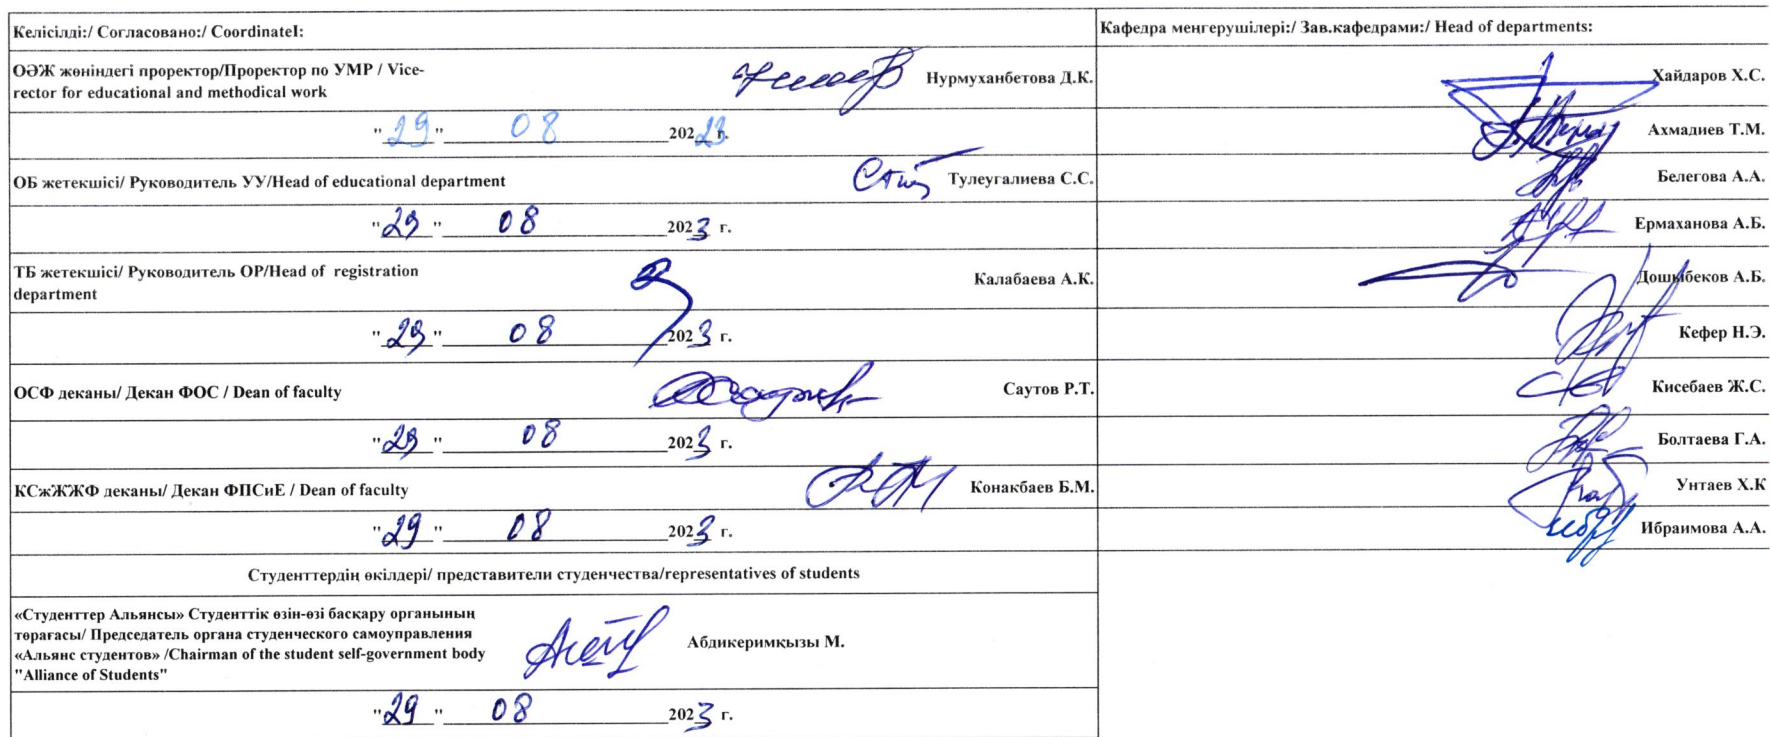 Келісілді:/ Согласовано:/ CoordinateI:
ОӘЖ жөніндегі проректор/Проректор по УМР / Vice-
rector for educational and methodical work
Нурмуханбетова Д.К.
"29" 08 2023 г.
ОБ жетекшісі/ Руководитель УУ/Head of educational department
Тулеугалиева С.С.
"29" 08 2023 г.
ТБ жетекшісі/ Руководитель ОР/Head of registration
department
Калабаева А.К.
"29" 08 2023 г.
ОСФ деканы/ Декан ФОС / Dean of faculty
Саутов Р.Т.
"29" 08 2023 г.
КСжЖЖФ деканы/ Декан ФПСиЕ / Dean of faculty
Конакбаев Б.М.
"29" 08 2023 г.
Студенттердің өкілдері/ представители студенчества/representatives of students
«Студенттер Альянсы» Студенттік өзін-өзі басқару органының
төрағасы/ Председатель органа студенческого самоуправления
«Альянс студентов» /Chairman of the student self-government body
"Alliance of Students"
Абдикеримқызы М.
"29" 08 2023 г.
Кафедра меңгерушілері:/ Зав.кафедрами:/ Head of departments:
Хайдаров Х.С.
Ахмадиев Т.М.
Белегова А.А.
Ермаханова А.Б.
Дошыбеков А.Б.
Кефер Н.Э.
Кисебаев Ж.С.
Болтаева Г.А.
Унтаев Х.К
Ибраимова А.А.